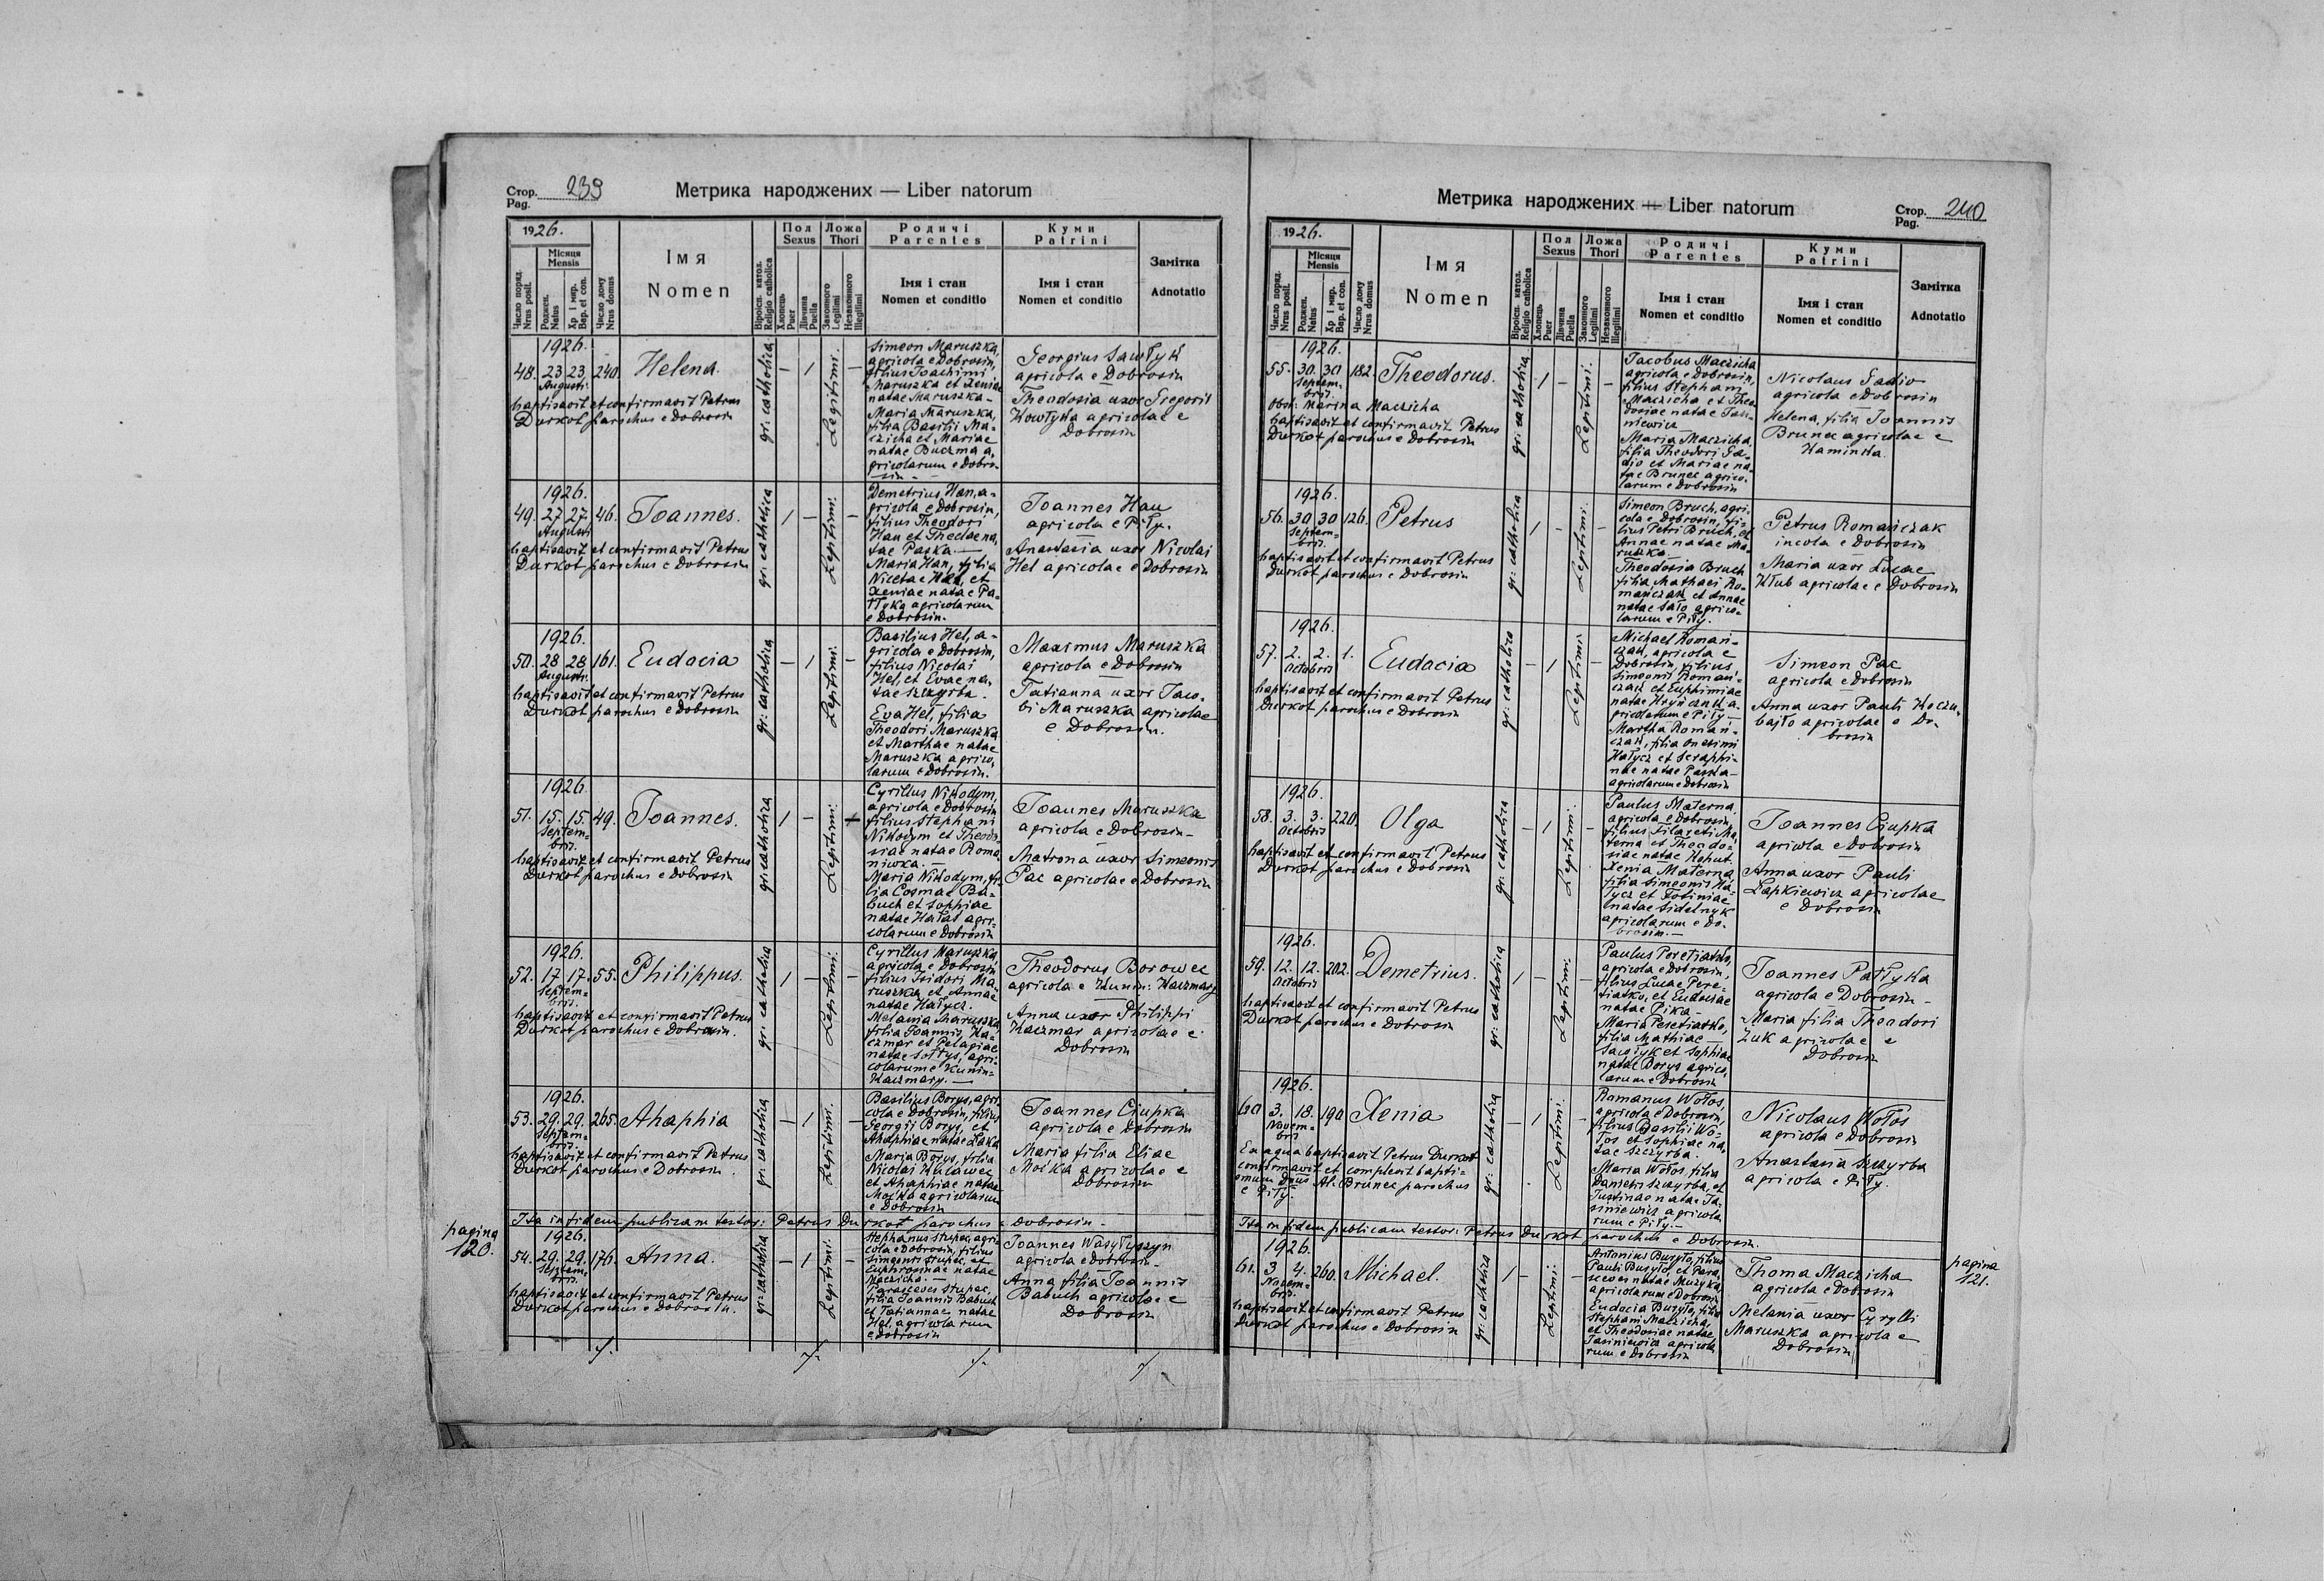 Стор. Pag. 239
Метрика народжених — Liber natorum
1926.
Місяця Mensis
Число поряд. Nrus posit.
Роджен. Natus
Хр і мир. Bap. et con.
Число дому Nrus domus
Імя Nomen
Віроісп. катол. Religio catholica
Пол Sexus
Хлопець Puer
Дівчина Puella
Ложа Thori
Законного Legitimi
Незаконного Illegitimi
Родичі Parentes
Імя і стан Nomen et conditio
Куми Patrini
Імя і стан Nomen et conditio
Замітка Adnotatio
1926.
48. 23 23 240. Helena. gr: catholica — 1 Legitimi. —
Augusti.
baptisavit et confirmavit Petrus
Durkot parochus e Dobrosin
Simeon Maruszka,
agricola e Dobrosin,
filius Joachimi
Maruszka et Xeniae
natae Maruszka —
Maria Maruszka,
filia Basilii Ma-
czicha et Mariae
natae Buczma a-
gricolarum e Dobro-
sin —
Georgius Sawłyk
agricola e Dobrosin
Theodosia uxor Gregorii
Kowłyka agricolae e
Dobrosin
1926.
49. 27 27. 46. Joannes. gr: catholica 1 — Legitimi. —
Augusti
baptisavit et confirmavit Petrus
Durkot parochus e Dobrosin
Demetrius Han, a-
gricola e Dobrosin,
filius Theodori
Han et Theclae na-
tae Paska. —
Maria Han, filia
Nicetae Hel, et
Xeniae natae Pa-
tłyka agricolarum
e Dobrosin.
Joannes Hau
agricola e Piły.
Anastasia uxor Nicolai
Hel agricolae e Dobrosin
1926.
50. 28 28 161. Eudocia gr: catholica — 1 Legitimi. —
Augusti.
baptisavit et confirmavit Petrus
Durkot parochus e Dobrosin
Basilius Hel, a-
gricola e Dobrosin,
filius Nicolai
Hel, et Evae na-
tae Szczyrba.
Eva Hel, filia
Theodori Maruszka
et Marthae natae
Maruszka agrico-
larum e Dobrosin.
Maximus Maruszka
agricola e Dobrosin
Tatianna uxor Jaco-
bi Maruszka agricolae
e Dobrosin.
1926
51. 15. 15. 49. Joannes. gr: catholica 1 — Legitimi.
Septem-
bris.
baptisavit et confirmavit Petrus
Durkot parochus e Dobrosin
Cyrillus Nikodym,
agricola e Dobrosin
filius Stephani
Nikodym et Theodo-
siae natae Roma-
niwka. —
Maria Nikodym, fi-
lia Cosmae Ba-
buch et Sophiae
natae Hałas agri-
colarum e Dobrosin
Joannes Maruszka
agricola e Dobrosin —
Matrona uxor Simeonis
Pac agricolae e Dobrosin
1926.
52. 17 17. 55. Philippus. gr: catholica 1 — Legitimi. —
Septem-
bris.
baptisavit et confirmavit Petrus
Durkot parochus e Dobrosin.
Cyrillus Maruszka,
agricola e Dobrosin
filius Isidori Ma-
ruszka et Annae
natae Hałycz.
Melania Maruszka
filia Joannis, Ka-
czmar et Pelagiae
natae Sołtys, agri-
colarum e Kunin-
Kaczmary. —
Theodorus Borowec
agricola e Kunin: Kaczmary
Anna uxor Philippi
Kaczmar agricolae e
Dobrosin
1926.
53. 29. 29. 265. Ahaphia gr: catholica — 1 Legitimi. —
Septem-
bris.
baptisavit et confirmavit Petrus
Durkot parochus e Dobrosin.
Basilius Borys, agri-
cola e Dobrosin, filius
Georgii Borys, et
Ahaphiae natae Łaka
Maria Borys, filia
Nicolai Kulawec
et Ahaphiae natae
Moćka agricolarum
e Dobrosin
Joannes Ciupka
agricola e Dobrosin
Maria filia Eliae
Moćka agricolae e
Dobrosin
Ita in fidem publicam testor: Petrus Durkot parochus e Dobrosin —
pagina 120.
1926.
54. 29. 29. 176. Anna. gr: catholica — 1 Legitimi. —
Septem-
bris.
baptisavit et confirmavit Petrus
Durkot parochus e Dobrosin.
Stephanus Stupec, agri-
cola e Dobrosin, filius
Simeonis Stupec, et
Euphrosinae natae
Maczicha. —
Parasceves Stupec,
filia Joannis Babuch
et Tatiannae natae
Hel, agricolarum
e Dobrosin
Joannes Wasyłyszyn
agricola e Dobrosin —
Anna filia Joannis
Babuch agricolae e
Dobrosin
Метрика народжених — Liber natorum
Стор. Pag. 240
1926.
Місяця Mensis
Число поряд. Nrus posit.
Роджен. Natus
Хр і мир. Bap. et con.
Число дому Nrus domus
Імя Nomen
Віроісп. катол. Religio catholica
Пол Sexus
Хлопець Puer
Дівчина Puella
Ложа Thori
Законного Legitimi
Незаконного Illegitimi
Родичі Parentes
Імя і стан Nomen et conditio
Куми Patrini
Імя і стан Nomen et conditio
Замітка Adnotatio
1926.
55. 30. 30 182. Theodorus. gr: catholica 1 — Legitimi. —
Septem-
bris.
Obst: Marina Maczicha
baptisavit et confirmavit Petrus
Durkot parochus e Dobrosin
Jacobus Maczicha
agricola e Dobrosin,
filius Stephani
Maczicha et Theo-
dosiae natae Jasi-
niewicz
Maria Maczicha,
filia Theodori Ga-
dio et Mariae na-
tae Brunec agrico-
larum e Dobrosin
Nicolaus Gadio
agricola e Dobrosin
Helena, filia Joannis
Brunec agricolae e
Kaminka.
1926.
56. 30 30 126. Petrus gr: catholica 1 — Legitimi. —
Septem-
bris.
baptisavit et confirmavit Petrus
Durkot parochus e Dobrosin
Simeon Bruch, agri-
cola e Dobrosin, fi-
lius Petri Bruch, et
Annae natae Ma-
ruszka —
Theodosia Bruch
filia Mathaei Ro-
mańczak et Annae
natae Sało agrico-
larum e Piły.
Petrus Romańczak
incola e Dobrosin
Maria uxor Lucae
Kłub agricolae e Dobrosin
1926.
57. 2. 2. 1. Eudocia gr: catholica — 1 Legitimi —
Octobris
baptisavit et confirmavit Petrus
Durkot parochus e Dobrosin
Michael Roman-
czak, agricola e
Dobrosin, filius,
Simeonis Roman-
czak et Euphimiae
natae Hryńczak a-
gricolarum e Piły —
Martha Roman-
czak, filia Onesimi
Hałycz et Seraphi-
nae natae Paska —
agricolarum e Dobrosin
Simeon Pac
agricola e Dobrosin
Anna uxor Pauli Koczu-
bajło agricolae e Do-
brosin
1926.
58. 3. 3. 220. Olga gr: catholica — 1 Legitimi. —
Octobris
baptisavit et confirmavit Petrus
Durkot parochus e Dobrosin
Paulus Materna
agricola e Dobrosin,
filius Filareti Ma-
terna et Theodo-
siae natae Hohut.
Xenia Materna
filia Simeonis Ha-
łycz et Fotiniae
natae Sidelnyk
agricolarum e Do-
brosin. —
Joannes Ciupka
agricola e Dobrosin
Anna uxor Pauli
Łapkiewicz agricolae
e Dobrosin
1926.
59. 12. 12. 202. Demetrius. gr: catholica 1 — Legitimi. —
Octobris
baptisavit et confirmavit Petrus
Durkot parochus e Dobrosin
Paulus Peretiatko,
agricola e Dobrosin,
filius Lucae Pere-
tiatko, et Eudociae
natae Pika —
Maria Peretiatko,
filia Mathiae —
Sawłyk et Sophiae
natae Borys agrico-
larum e Dobrosin
Joannes Patłyka
agricola e Dobrosin —
Maria filia Theodori
Żuk agricolae e
Dobrosin
1926.
60 3. 18. 190 Xenia gr: catholica — 1 Legitimi. —
Novem-
bris
Ex aqua baptisavit Petrus Durkot
confirmavit et complevit bapti-
smum Dnus Al. Brunec parochus
e Piły.
Romanus Wołos,
agricola e Dobrosin,
filius Basilii Wo-
łos et Sophiae na-
tae Szczyrba.
Maria Wołos, filia
Danielis Szczyrba, et
Justinae natae Ja-
siniewicz agricola-
rum e Piły. —
Nicolaus Wołos
agricola e Dobrosin
Anastasia Szczyrba
agricola e Piły.
Ita in fidem publicam testor: Petrus Durkot parochus e Dobrosin.
pagina 121.
1926.
61. 3 4. 260. Michael. gr: catholica 1 — Legitimi. —
Novem-
bris.
baptisavit et confirmavit Petrus
Durkot parochus e Dobrosin
Antonius Busyło, filius
Pauli Busyło, et Para-
sceves natae Muzyka,
agricolarum e Dobrosin
Eudocia Busyło, filia
Stephani Maczicha,
et Theodosiae natae
Jasiniewicz agricola-
rum e Dobrosin
Thoma Maczicha
agricola e Dobrosin
Melania uxor Cyrylli
Maruszka agricola e
Dobrosin